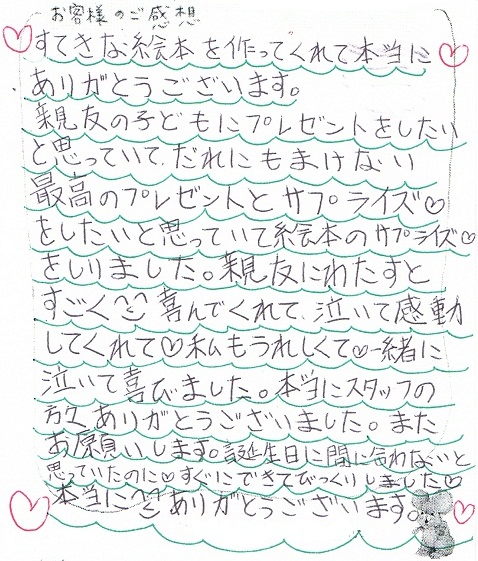 お客様のご感想
すてきな絵本を作ってくれて本当に
ありがとうございます。
親友の子どもにプレゼントをしたい
と思っていて、だれにもまけない
最高のプレゼントとサプライズ♡
をしたいと思っていて絵本のサプライズ♡
をしりました。親友にわたすと
すごく^^喜んでくれて、泣いて感動
してくれて♡私もうれしくて♡一緒に
泣いて喜びました。本当にスタッフの
方々ありがとうございました。また
お願いします。誕生日に間に合わないと
思っていたのに♡すぐにできてびっくりしました♡
本当に^^ありがとうございます。